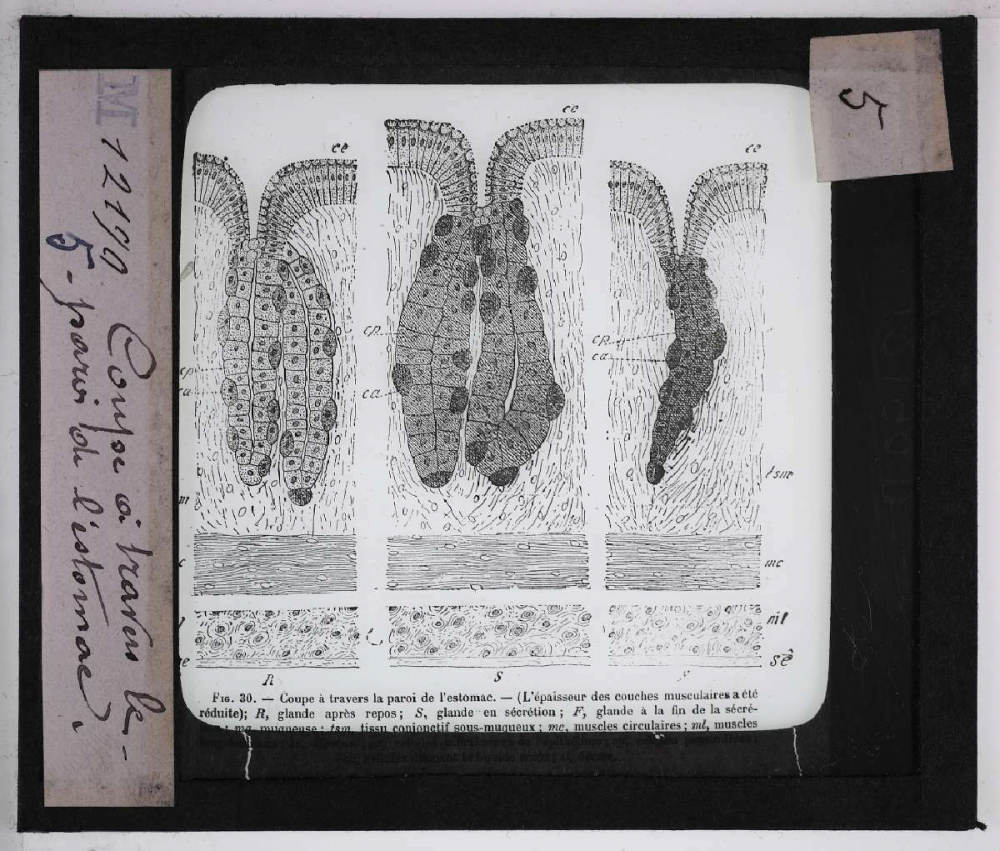 M 12190 Coupe à travers le-
5- paroi de l'estomac.
5
ce
ce
ce
cp
ca
cp
ca
cp
ca
tsm
m
c
mc
l
ml
e
sê
R
S
F
FIG. 30. — Coupe à travers la paroi de l'estomac. — (L'épaisseur des couches musculaires a été
réduite); R, glande après repos; S, glande en sécrétion; F, glande à la fin de la sécré-
mq, muqueuse; tsm, tissu conjonctif sous-muqueux; mc, muscles circulaires; ml, muscles